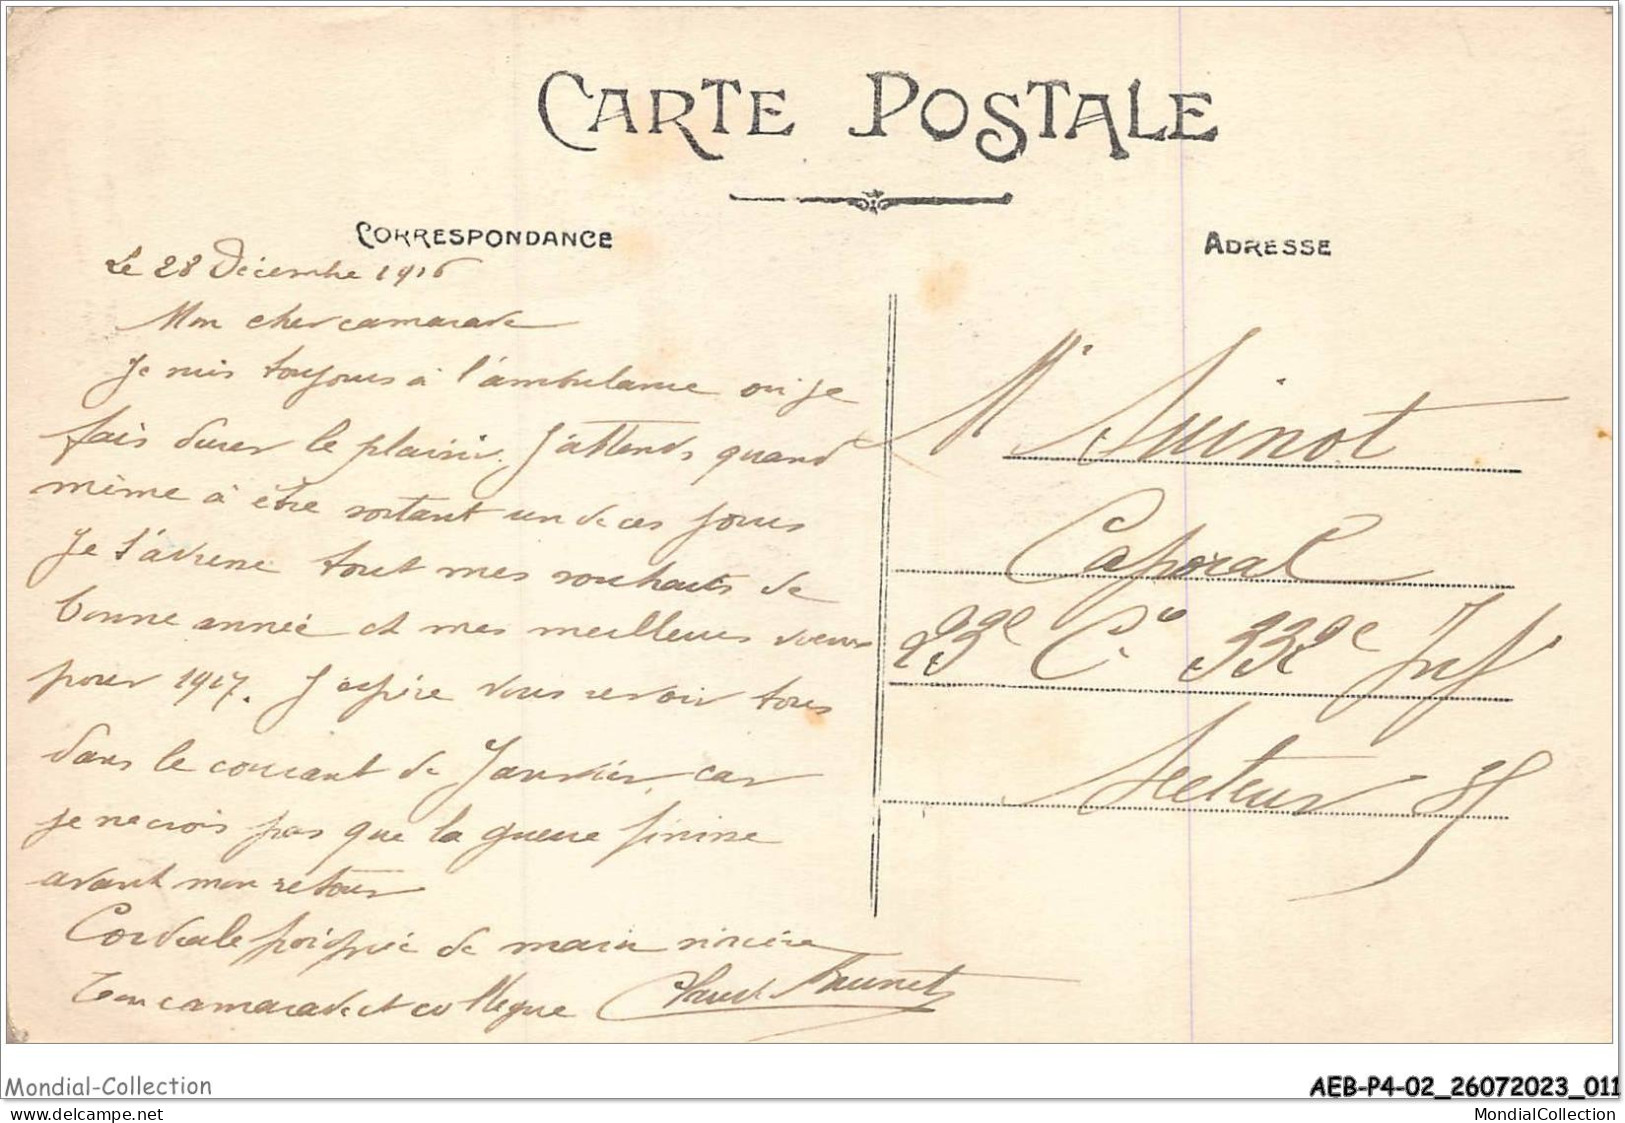 CARTE POSTALE
CORRESPONDANCE
ADRESSE
Le 28 Décembre 1916
Mon cher camarade
Je suis toujours à l'ambulance où je
fais durer le plaisir. J'attends quand
même à être sortant un de ces jours
Je t'adresse tout mes souhaits de
bonne année et mes meilleurs voeux
pour 1917. J'espère vous revoir tous
dans le courant de Janvier, car
je ne crois pas que la guerre finisse
avant mon retour
Cordiale poignée de main sincère
Ton camarade et collègue Brunet
Mr Suinot
Caporal
23e Cie 332e Inf
Secteur
Mondial-Collection
AEB-P4-02_26072023_011
delcampe.net
MondialCollection